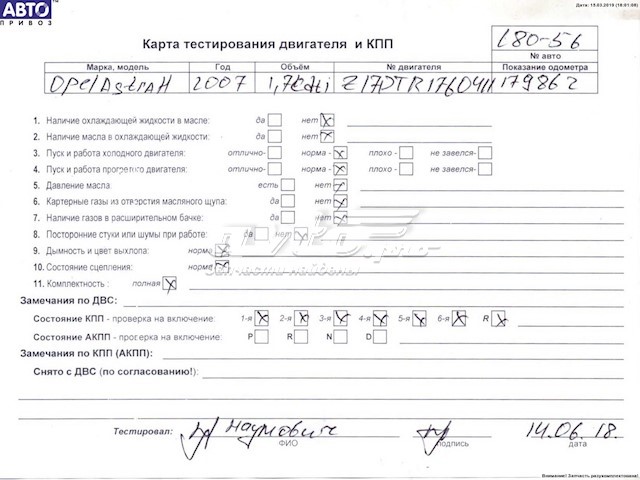 АВТО
ПРИВОЗ
Дата: 15.03.2019 (18:01:08)
Карта тестирования двигателя и КПП
L80-56
№ авто
Марка, модель Год Объём № двигателя Показание одометра
Opel Astra H 2007 1,7cdti Z17DTR1760411 179862
1. Наличие охлаждающей жидкости в масле: да нет x
2. Наличие масла в охлаждающей жидкости: да нет x
3. Пуск и работа холодного двигателя: отлично- норма - x плохо - не завелся-
4. Пуск и работа прогретого двигателя: отлично- норма - x плохо - не завелся-
5. Давление масла: есть нет x
6. Картерные газы из отверстия масляного щупа: да нет x
7. Наличие газов в расширительном бачке: да нет x
8. Посторонние стуки или шумы при работе: да нет x
9. Дымность и цвет выхлопа: норма x
10. Состояние сцепления: норма x
11. Комплектность : полная x
запчасти найдены
Замечания по ДВС:
Состояние КПП - проверка на включение: 1-я x 2-я x 3-я x 4-я x 5-я x 6-я x R x
Состояние АКПП - проверка на включение: P R N D
Замечания по КПП (АКПП):
Снято с ДВС (по согласованию!):
Тестировал: Наумович 14.06.18.
ФИО подпись дата